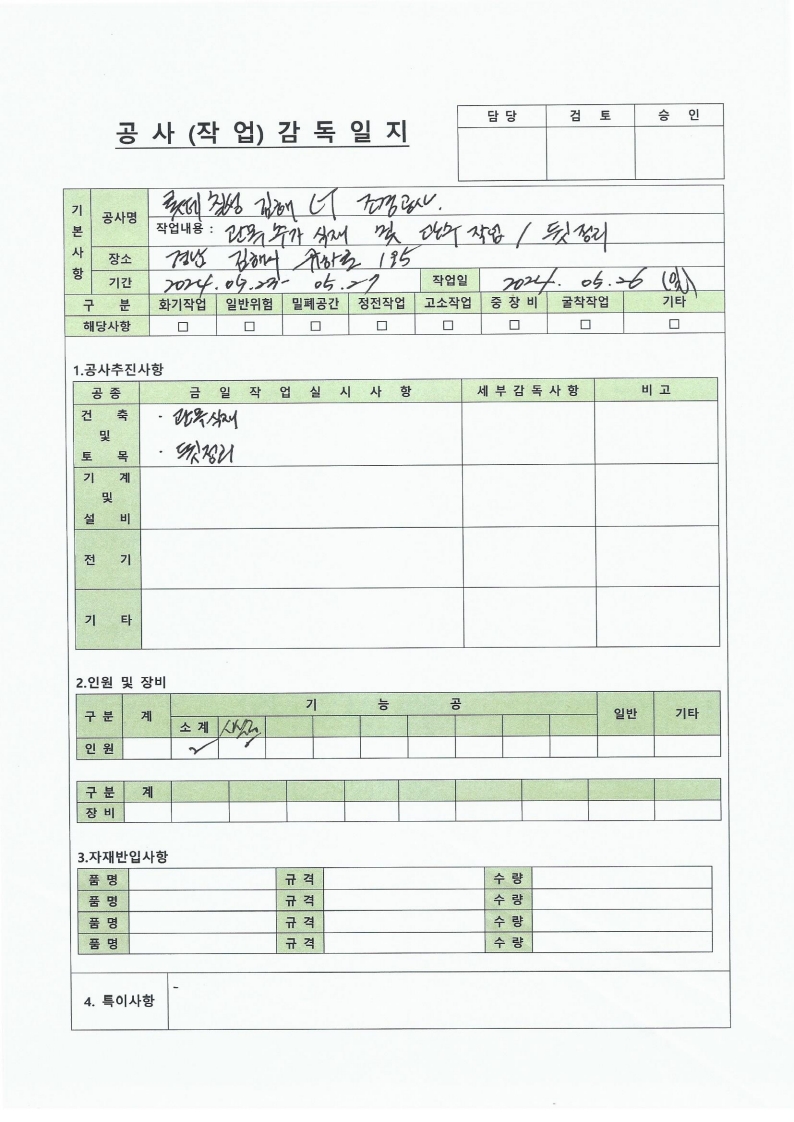 공 사 (작 업) 감 독 일 지
담 당 검 토 승 인
기본사항
공사명 롯데 칠성 김해 CT 조경공사.
작업내용 : 관목 추가 식재 및 관수 작업 / 뒷정리
장소 경남 김해시 유하로 135
기간 2024. 05.23- 05.27 작업일 2024. 05.26 (일)
구 분 화기작업 일반위험 밀폐공간 정전작업 고소작업 중 장 비 굴착작업 기타
해당사항 □ □ □ □ □ □ □ □
1.공사추진사항
공 종 금 일 작 업 실 시 사 항 세 부 감 독 사 항 비 고
건 축 및 토 목
- 관목식재
- 뒷정리
기 계 및 설 비
전 기
기 타
2.인원 및 장비
구 분 계 기 능 공 일반 기타
소 계
인 원
구 분 계
장 비
3.자재반입사항
품 명 규 격 수 량
품 명 규 격 수 량
품 명 규 격 수 량
품 명 규 격 수 량
4. 특이사항 -